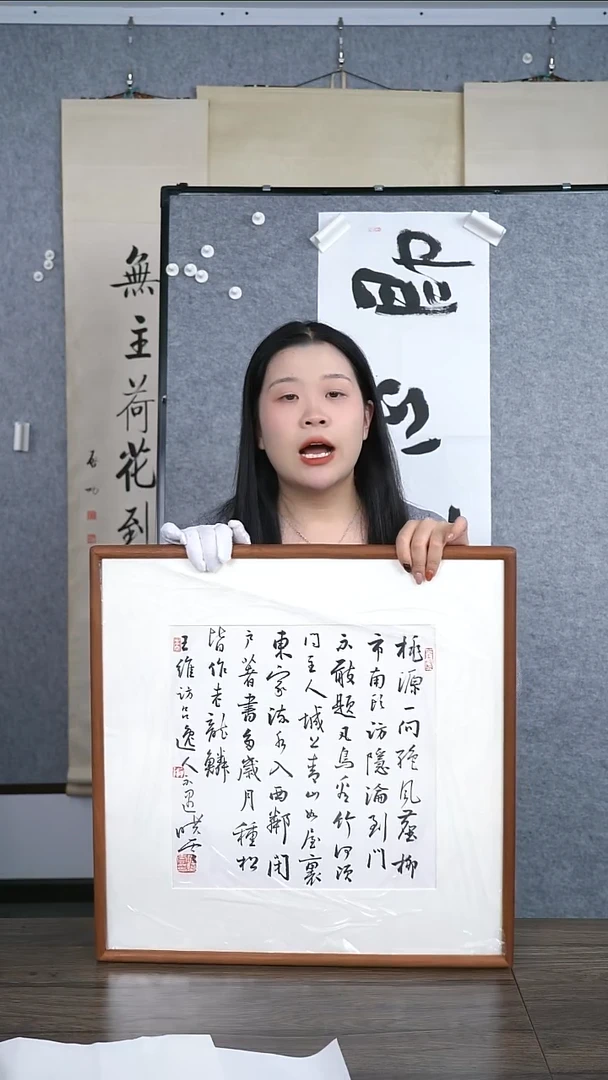 桃源一向絕風塵柳
市南頭訪隱淪到門
不敢題凡鳥看竹何須
问主人城上青山如屋裏
東家流水入西鄰闭
戶著書多歲月種松
皆作老龍鱗
王維訪吕逸人不遇
無主荷花到
启功